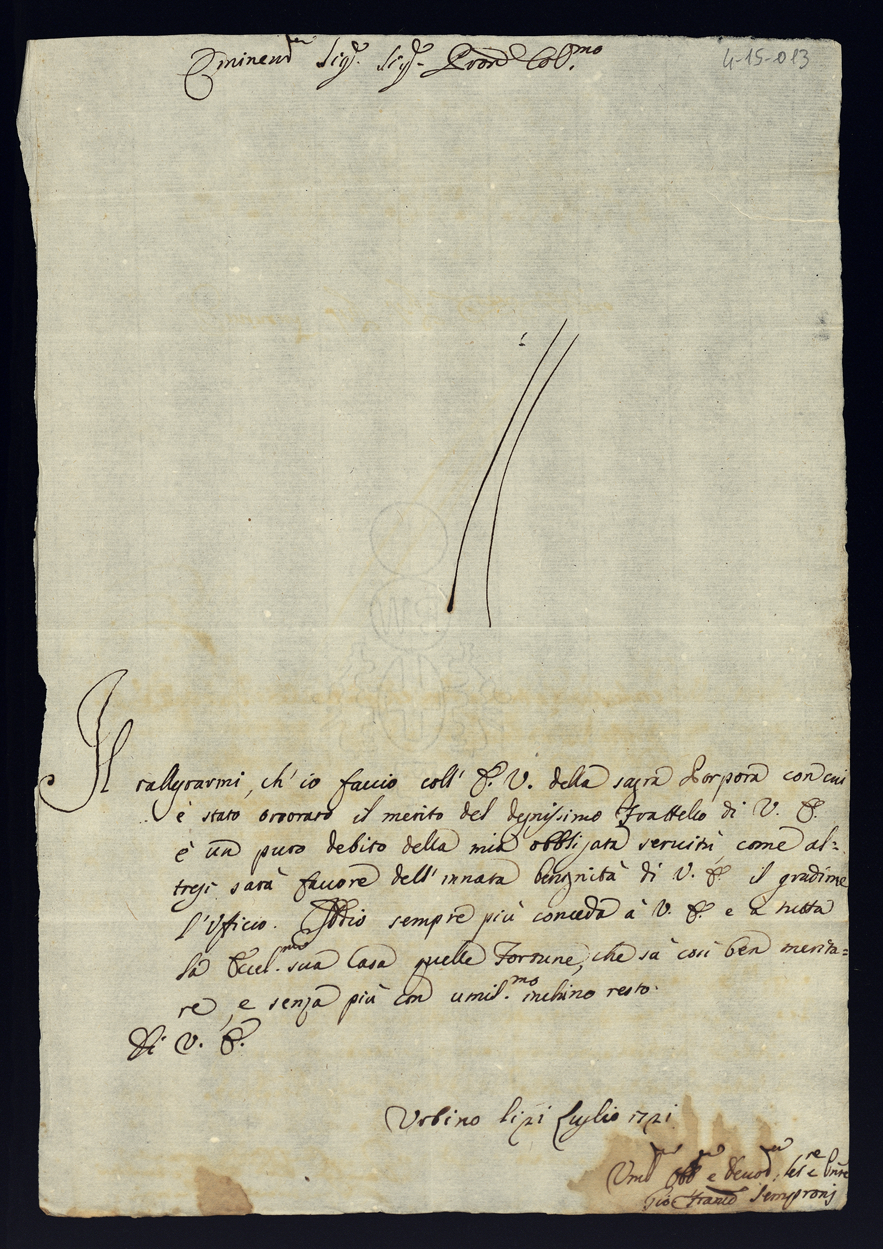 Eminen.mo Sig.r Sig.r Pron Col.mo
4-15-013
Il rallegrarmi, ch' io faccio coll' E. V. della sagra Porpora con cui
è stato onorato il merito del degnissimo Frattello di V. E.
è un puro debito della mia obbligata servitù come al=
tresi sarà favore dell' innata benignità di V. E. il gradirne
l' Ufficio. Iddio sempre più conceda à V. E. e a tutta
la Eccel.ma sua Casa quelle Fortune, che sà così ben merita=
re, e senza più con umil.mo inchino resto.
Di V. E.
Urbino li 21 Luglio 1721
Um.mo e Devot.mo
Gio Franco Sempronj